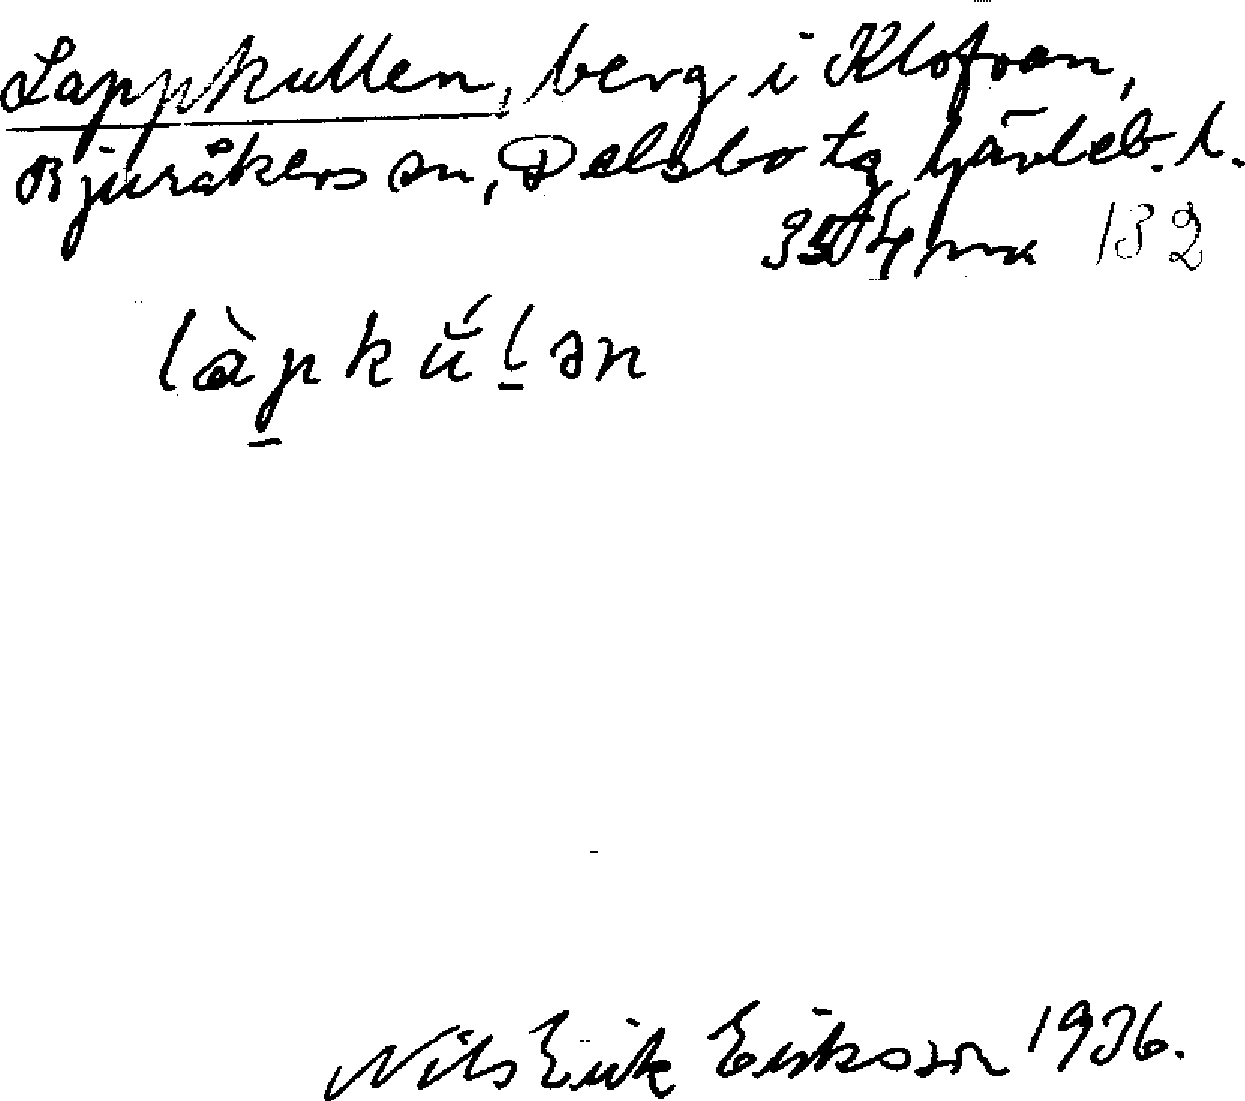 Lappkullen, berg i Klofoen,
Bjuråkers sn, Delsbo tg, Gävleb. l.
132
làpkŭ́lən
Nils Erik Eriksson 1936.